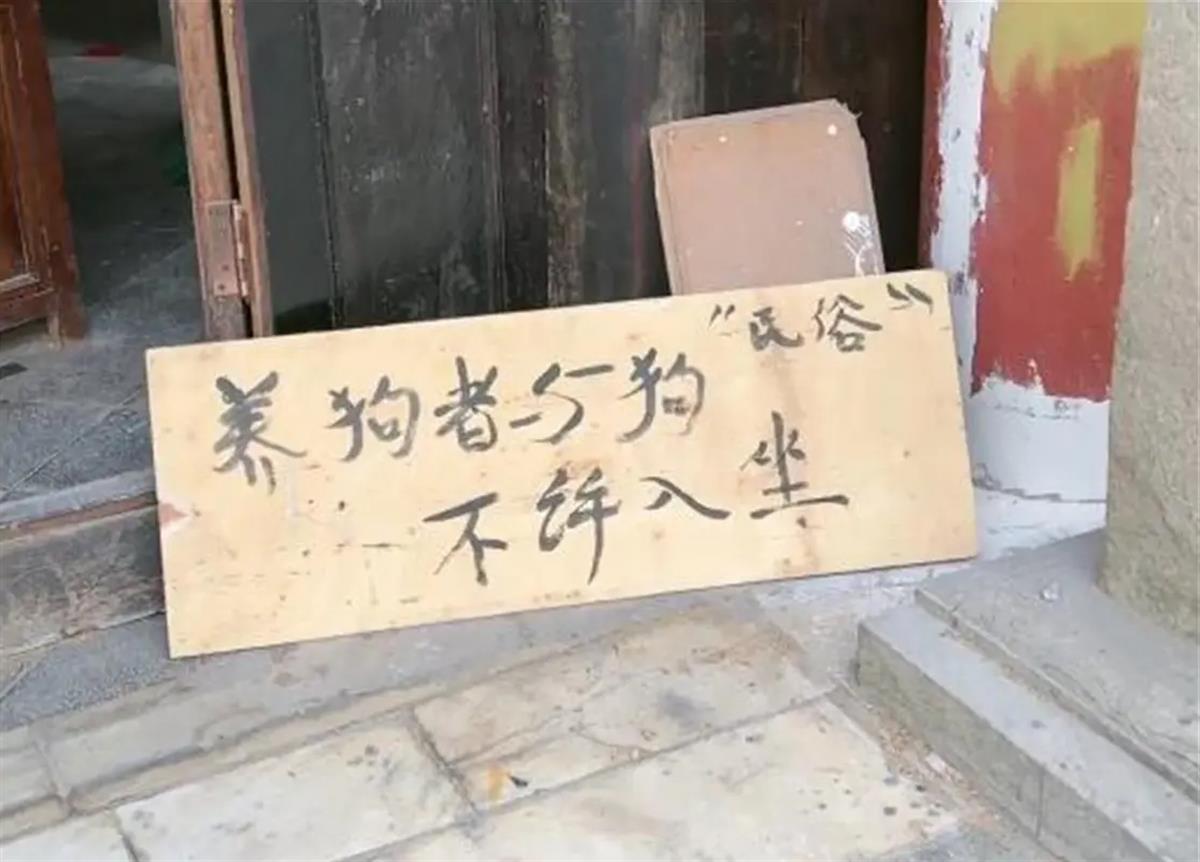 养狗者与狗“民俗”
不许入坐